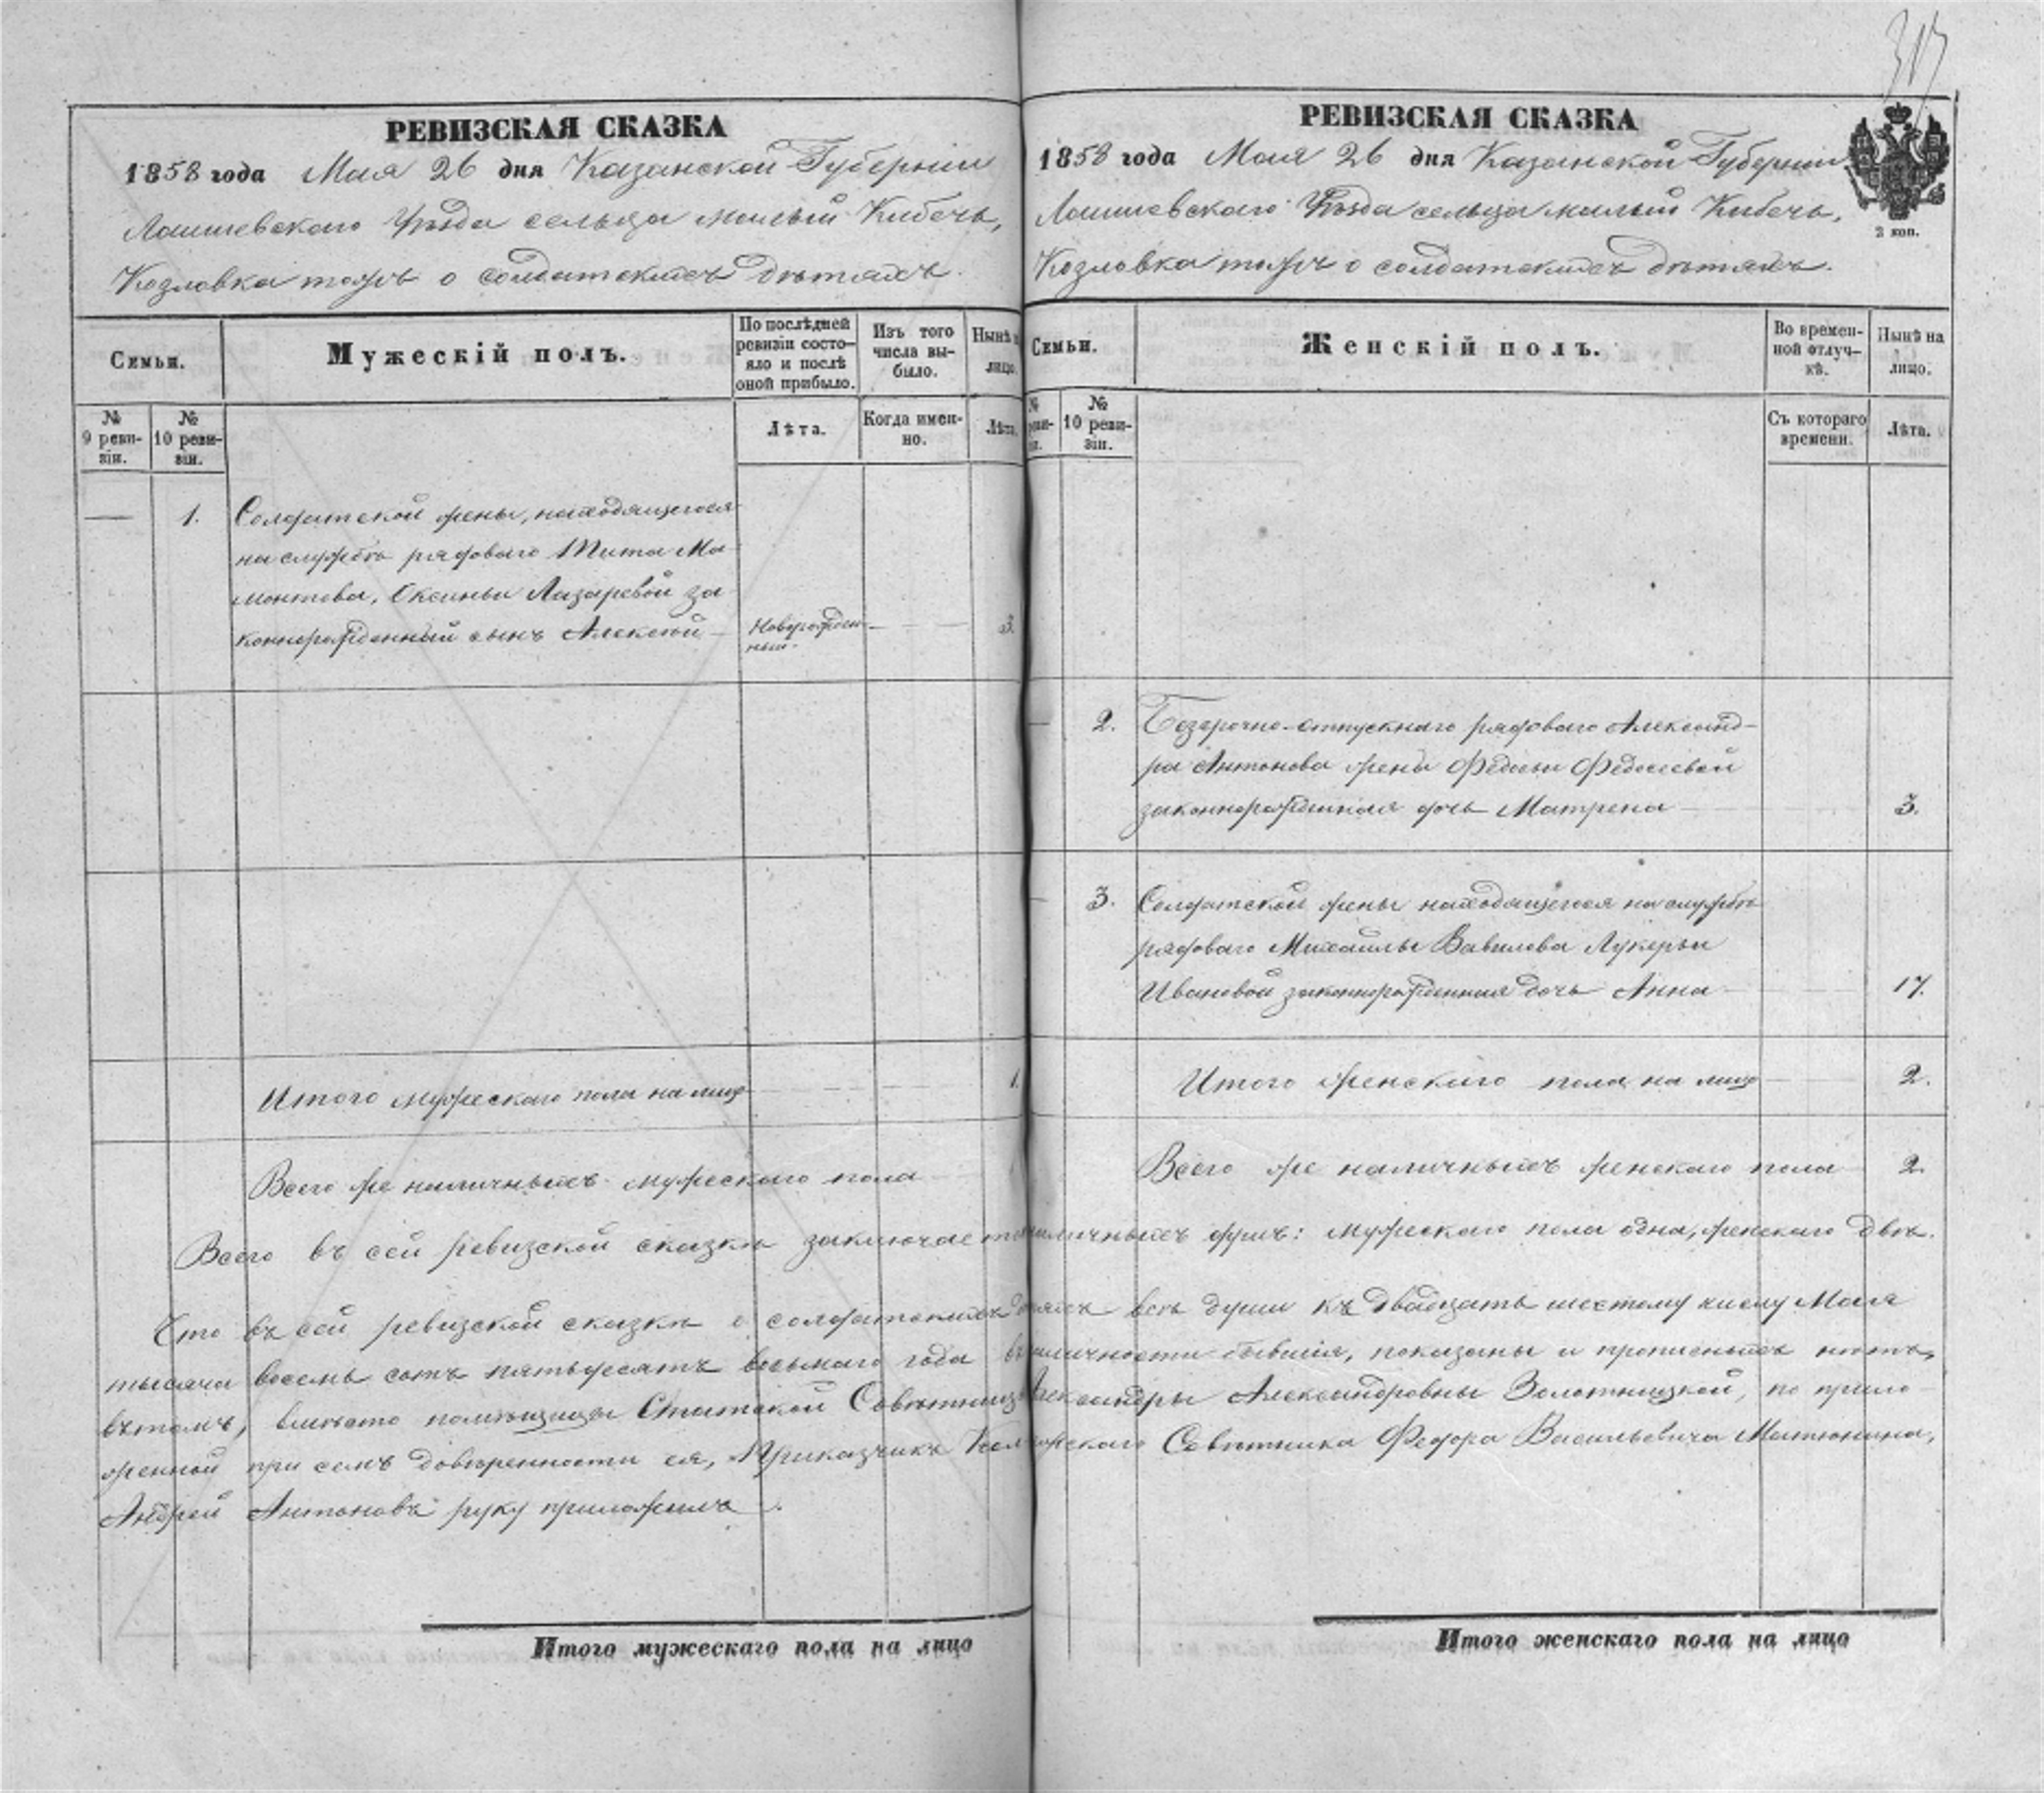 317
РЕВИЗСКАЯ СКАЗКА
1858 года Мая 26 дня Казанской Губерніи
Лаишевскаго Уѣзда сельца малый Кибечь,
Козловка тожъ о солдатскихъ дѣтяхъ.
Семьи.
Мужескій полъ.
По послѣдней ревизіи состояло и послѣ оной прибыло.
Изъ того числа выбыло.
Нынѣ на лицо.
№ 9 ревизіи.
№ 10 ревизіи.
Лѣта.
Когда именно.
Лѣта.
— 1. Солдатской жены, находящегося
на службѣ рядоваго Тита Ма-
монтова, Оксиньи Лазаревой за-
коннорожденный сынъ Алексѣй — Новорожден- 3.
ный.
Итого мужескаго пола на лицо 1.
Всего же наличныхъ мужескаго пола
РЕВИЗСКАЯ СКАЗКА
1858 года Мая 26 дня Казанской Губерніи
Лаишевскаго Уѣзда сельца малый Кибечь,
Козловка тожъ о солдатскихъ дѣтяхъ.
2 коп.
Семьи.
Женскій полъ.
Во временной отлучкѣ.
Нынѣ на лицо.
№ реви-зіи.
№ 10 ревизіи.
Съ котораго времени.
Лѣта.
— 2. Безсрочно-отпускнаго рядоваго Александ-
ра Антонова жены Федосьи Федосеевой
законнорожденная дочь Матрена — 3.
— 3. Солдатской жены находящегося на службѣ
рядоваго Михайлы Вавилова Лукерьи
Ивановой законнорожденная дочь Анна 17.
Итого женскаго пола на лицо 2.
Всего же наличныхъ женскаго пола 2.
Всего въ сей ревизской сказкѣ заключается наличныхъ душъ: мужескаго пола одна, женскаго двѣ.
Что въ сей ревизской сказкѣ о солдатскихъ дѣтяхъ всѣ души къ двадцать шестому числу Мая
тысяча восемь сотъ пятьдесятъ восьмаго года въ наличности бывшія, показаны и прописныхъ нѣтъ,
въ томъ, вмѣсто помѣщицы Статской Совѣтницы Александры Александровны Золотницкой, по прило-
женной при семъ довѣренности ея, Прикащикъ Коллежскаго Совѣтника Федора Васильевича Матюнина,
Андрей Антоновъ руку приложилъ.
Итого мужескаго пола на лицо
Итого женскаго пола на лицо